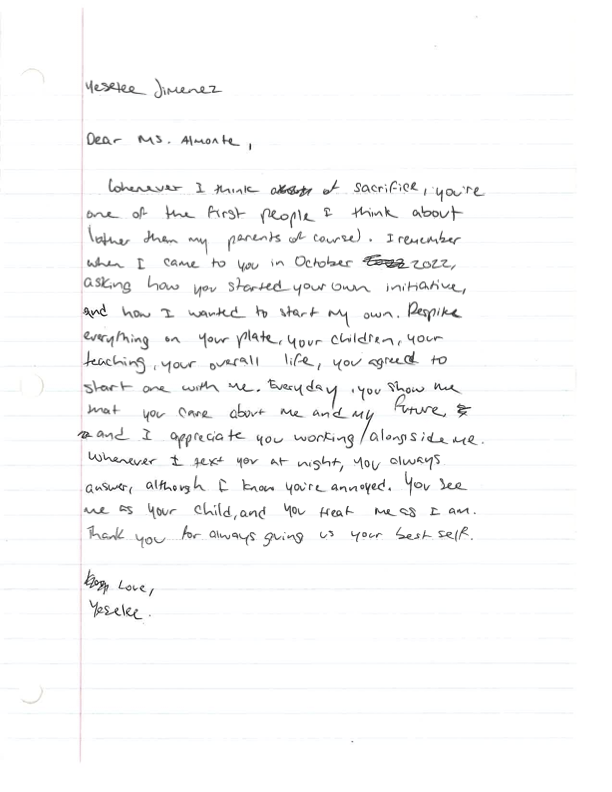 Yeselee Jimenez
Dear Ms. Almonte,
Whenever I think of sacrifice, you're
one of the first people I think about
(other than my parents of course). I remember
when I came to you in October 2022,
asking how you started your own initiative,
and how I wanted to start my own. Despite
everything on your plate, your children, your
teaching, your overall life, you agreed to
start one with me. Everyday, you show me
that you care about me and my future,
and I appreciate you working alongside me.
Whenever I text you at night, you always
answer, although I know you're annoyed. You see
me as your child, and you treat me as I am.
Thank you for always giving us your best self.
Love,
Yeselee.